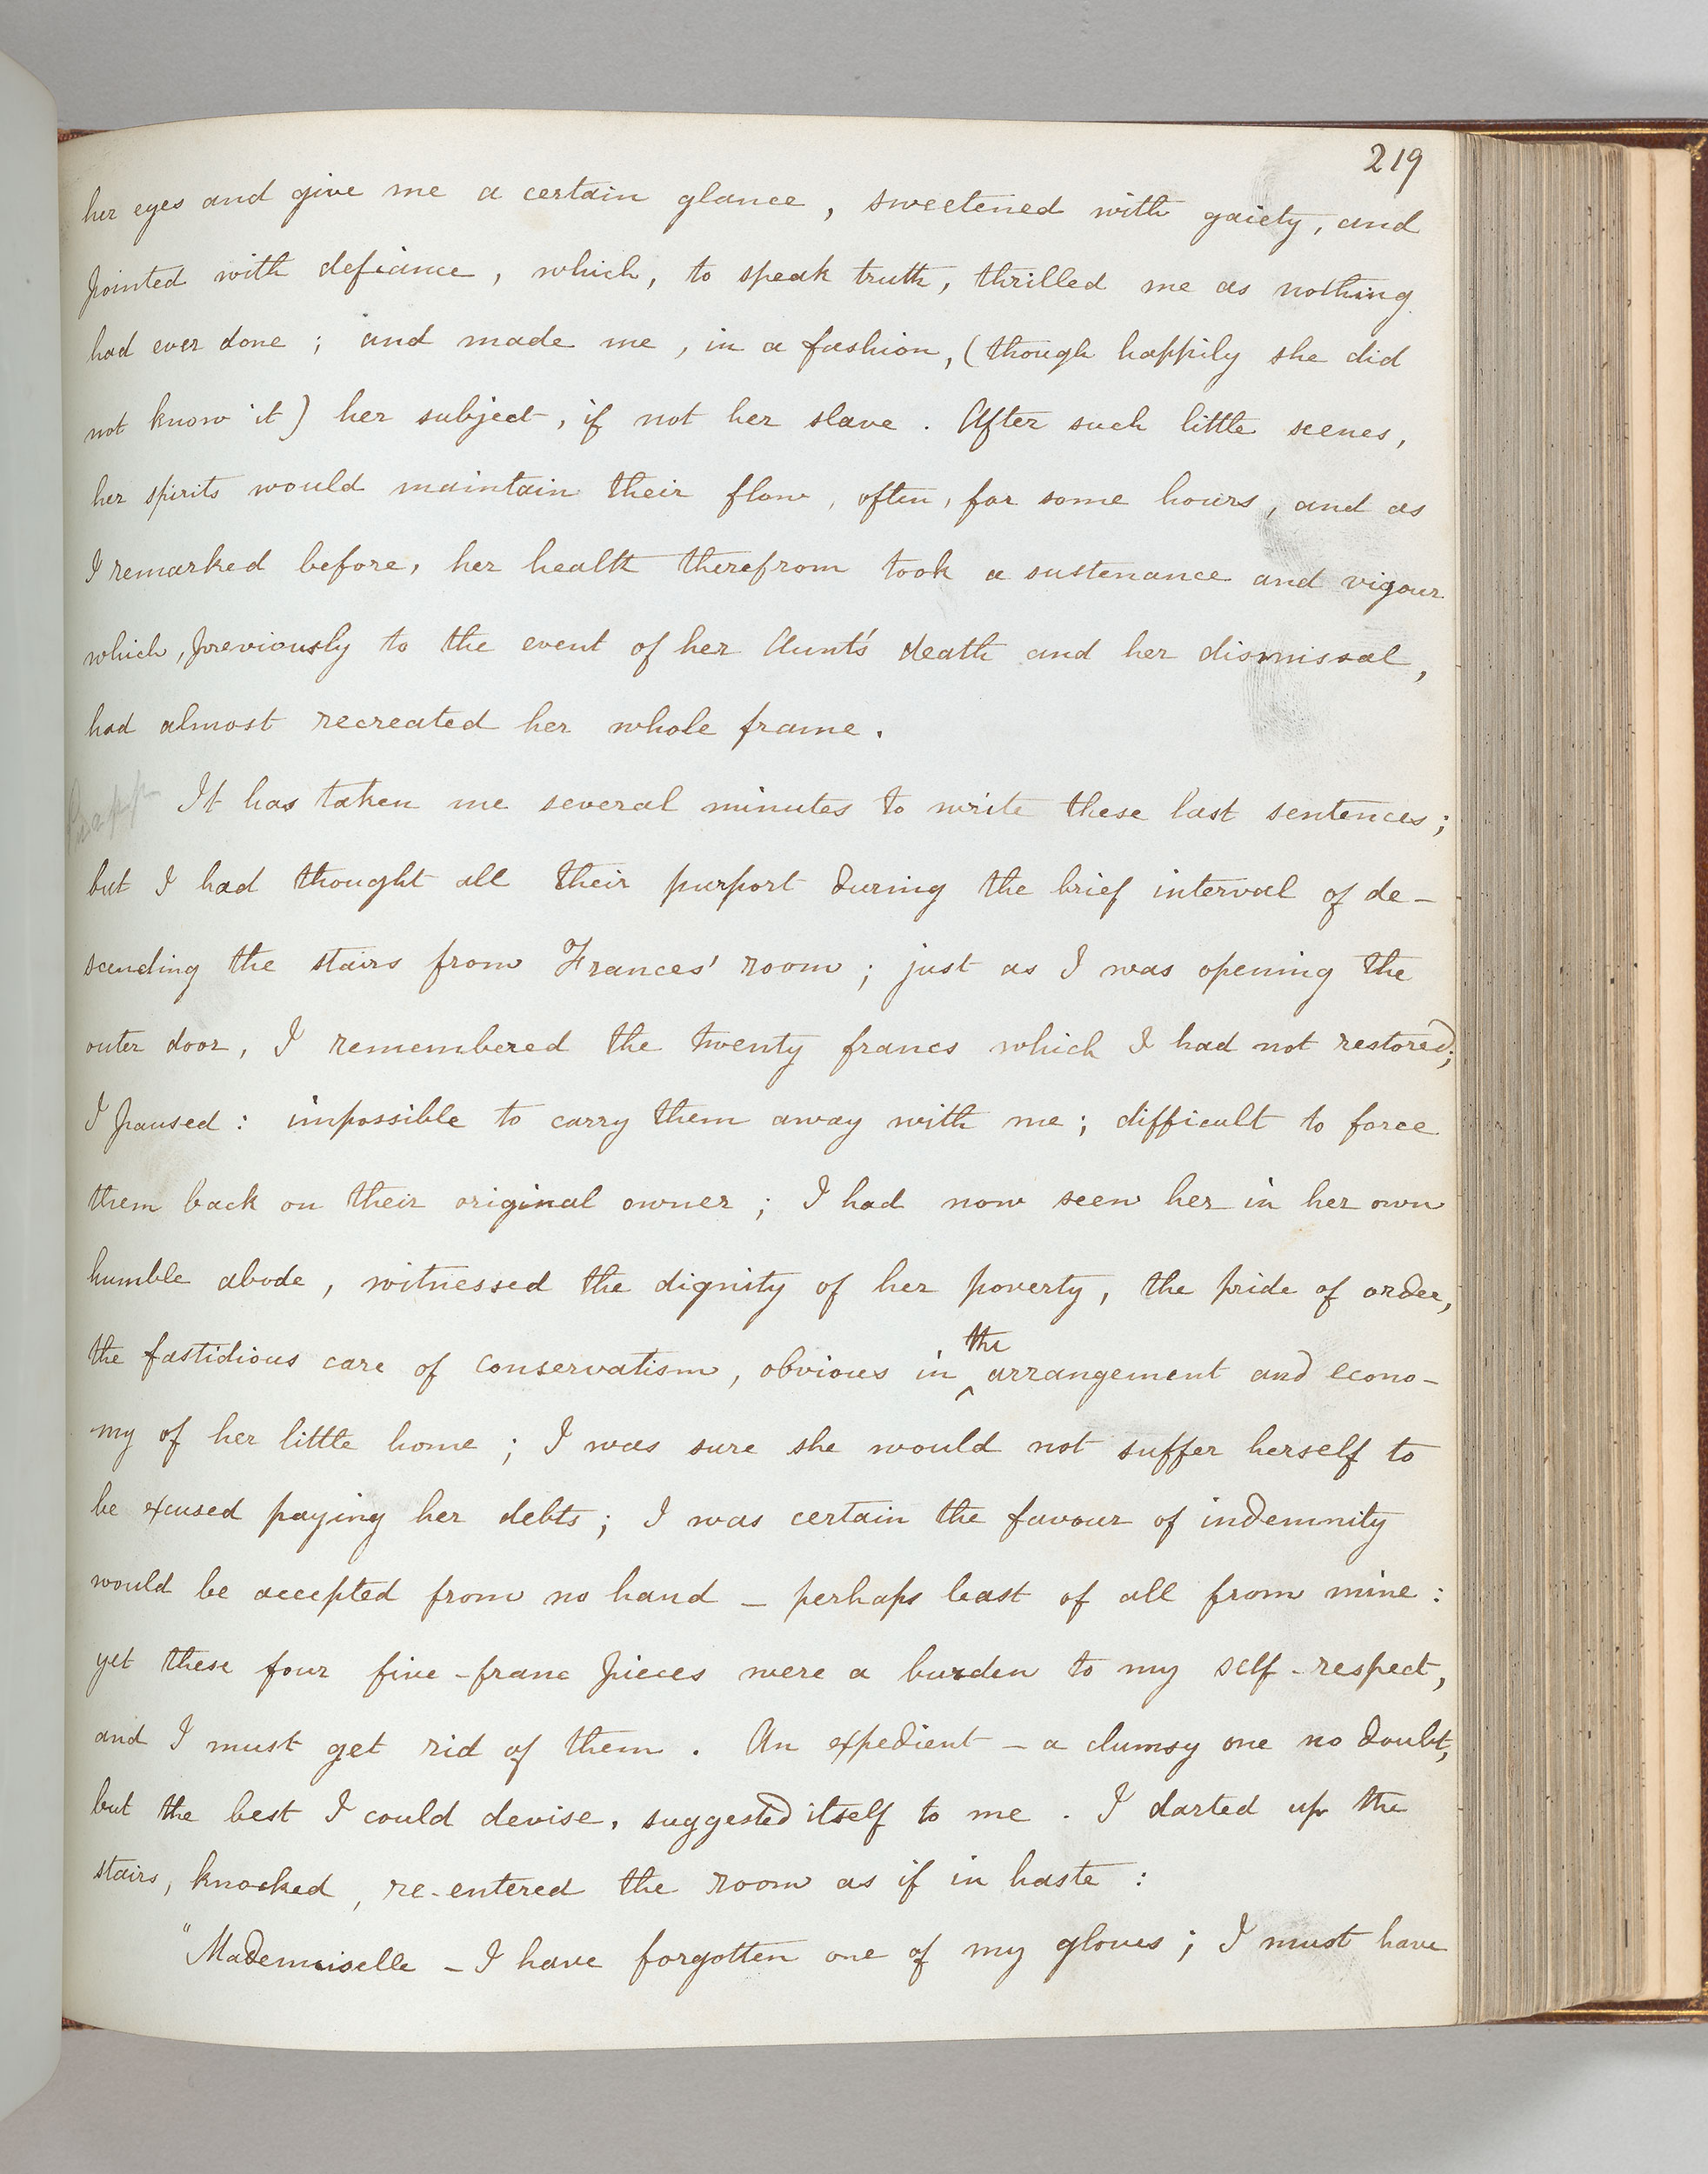 219
her eyes and give me a certain glance, sweetened with gaiety, and
pointed with defiance, which, to speak truth, thrilled me as nothing
had ever done; and made me, in a fashion, (though happily she did
not know it) her subject, if not her slave. After such little scenes,
her spirits would maintain their flow, often, for some hours, and as
I remarked before, her health therefrom took a sustenance and vigour
which, previously to the event of her Aunt's death and her dismissal,
had almost recreated her whole frame.
It has taken me several minutes to write these last sentences;
but I had thought all their purport during the brief interval of de-
scending the stairs from Frances' room; just as I was opening the
outer door, I remembered the twenty francs which I had not restored;
I paused: impossible to carry them away with me; difficult to force
them back on their original owner; I had now seen her in her own
humble abode, witnessed the dignity of her poverty, the pride of order,
the fastidious care of conservatism, obvious in the arrangement and econo-
my of her little home; I was sure she would not suffer herself to
be excused paying her debts; I was certain the favour of indemnity
would be accepted from no hand - perhaps least of all from mine:
yet these four five-franc pieces were a burden to my self-respect,
and I must get rid of them. An expedient - a clumsy one no doubt,
but the best I could devise, suggested itself to me. I darted up the
stairs, knocked, re-entered the room as if in haste:
"Mademoiselle - I have forgotten one of my gloves; I must have